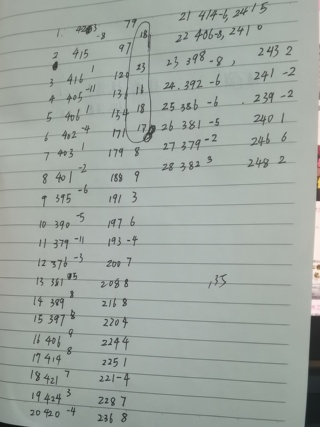 79
1 42 3 -8 18 21 414 -6, 241 5
2 415 97 22 406 -8, 241 0
3 416 1 120 23 23 398 -8, 243 2
4 405 -11 136 16 24. 392 -6 241 -2
5 406 1 154 18 25 386 -6 . 239 -2
6 402 -4 171 17 26 381 -5 240 1
7 403 1 179 8 27 379 -2 246 6
8 401 -2 188 9 28 382 3 248 2
9 395 -6 191 3
10 390 -5 197 6
11 379 -11 193 -4
12 376 -3 200 7
13 381 5 208 8 ,35
14 389 8 216 8
15 397 8 220 4
16 406 9 224 4
17 414 8 225 1
18 421 7 221 -4
19 424 3 228 7
20 420 -4 236 8